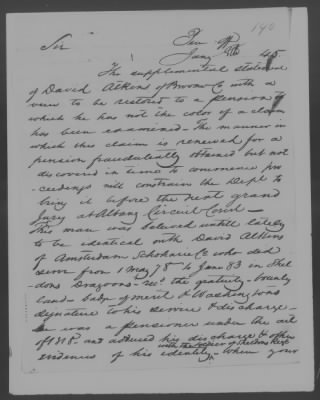 140
Sir Pen Off
Jany 8th 45
The supplemental statement
of David Atkins of Broome Co with a
view to be restored to a pension to
which he has not the color of a claim
has been examined - The manner in
which this claim is renewed for a
pension fraudulently obtained but not
discovered in time to commence pro
-ceedings will constrain the Dept to
bring it before the next grand
Jury at Albany Circuit Court -
This man was believed untill lately
to be identical with David Atkins
of Amsterdam Schoharie Co who did
serve from 1 May 78 to June 83 in Shel
dons Dragoons - rec'd the gratuity - bounty
land - badge of merit & Washingtons
signature to his service & discharge -
He was a pensioner under the act
of 1818 and adduced his discharge & other
evidence of his identity with the Soldier of Sheldons Regt - When your